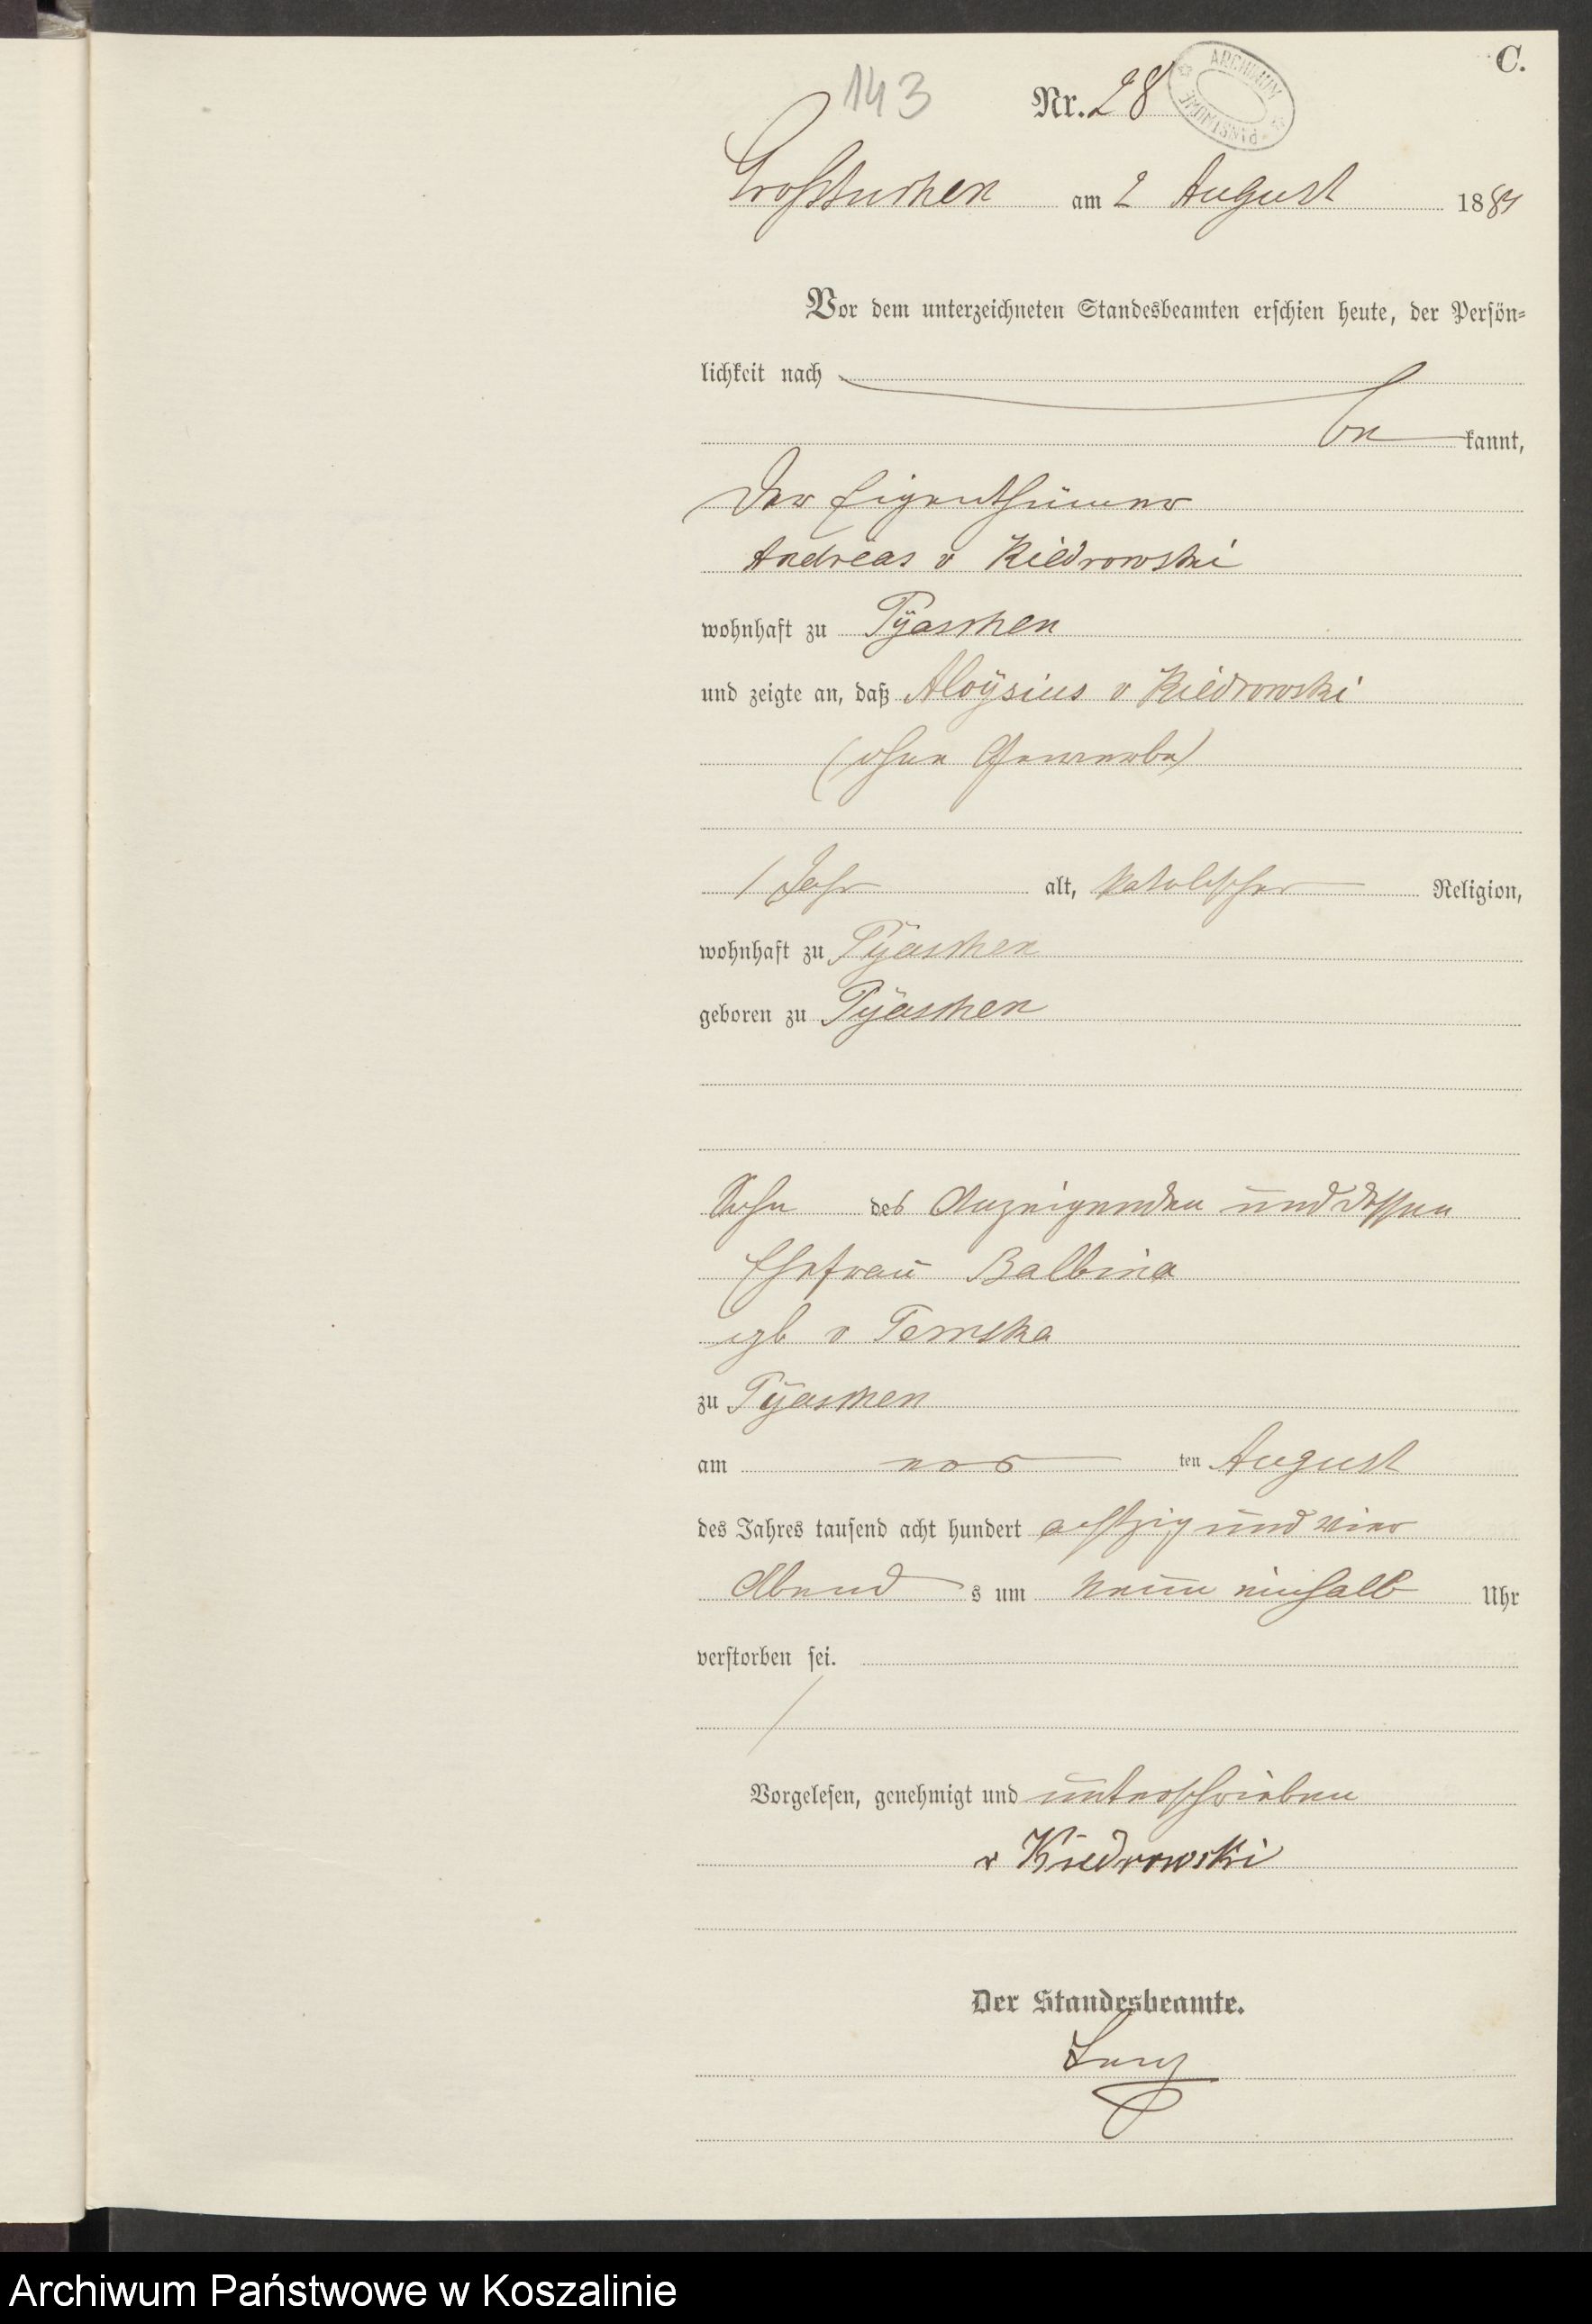 C.
143
Nr. 28
ARCHIWUM PAŃSTWOWE
Großtuchen am 2 August 1884
Vor dem unterzeichneten Standesbeamten erschien heute, der Persön-
lichkeit nach
be kannt,
der Eigenthümer
Andreas v Kiedrowski
wohnhaft zu Pyaschen
und zeigte an, daß Aloysius v Kiedrowski
(ohne Gewerbe)
1 Jahr alt, katolischer Religion,
wohnhaft zu Pyaschen
geboren zu Pyaschen
Sohn des Anzeigenden und dessen
Ehefrau Balbina
geb v
zu Pyaschen
am ten August
des Jahres tausend acht hundert achtzig und vier
Abend s um neun einhalb Uhr
verstorben sei.
Vorgelesen, genehmigt und unterschrieben
v Kiedrowski
Der Standesbeamte.
Archiwum Państwowe w Koszalinie